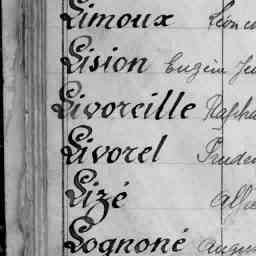 Limoux Léon
Lision Eugène
Livoreille Rapha
Livorel Pruden
Lizé
Lognoné Augus